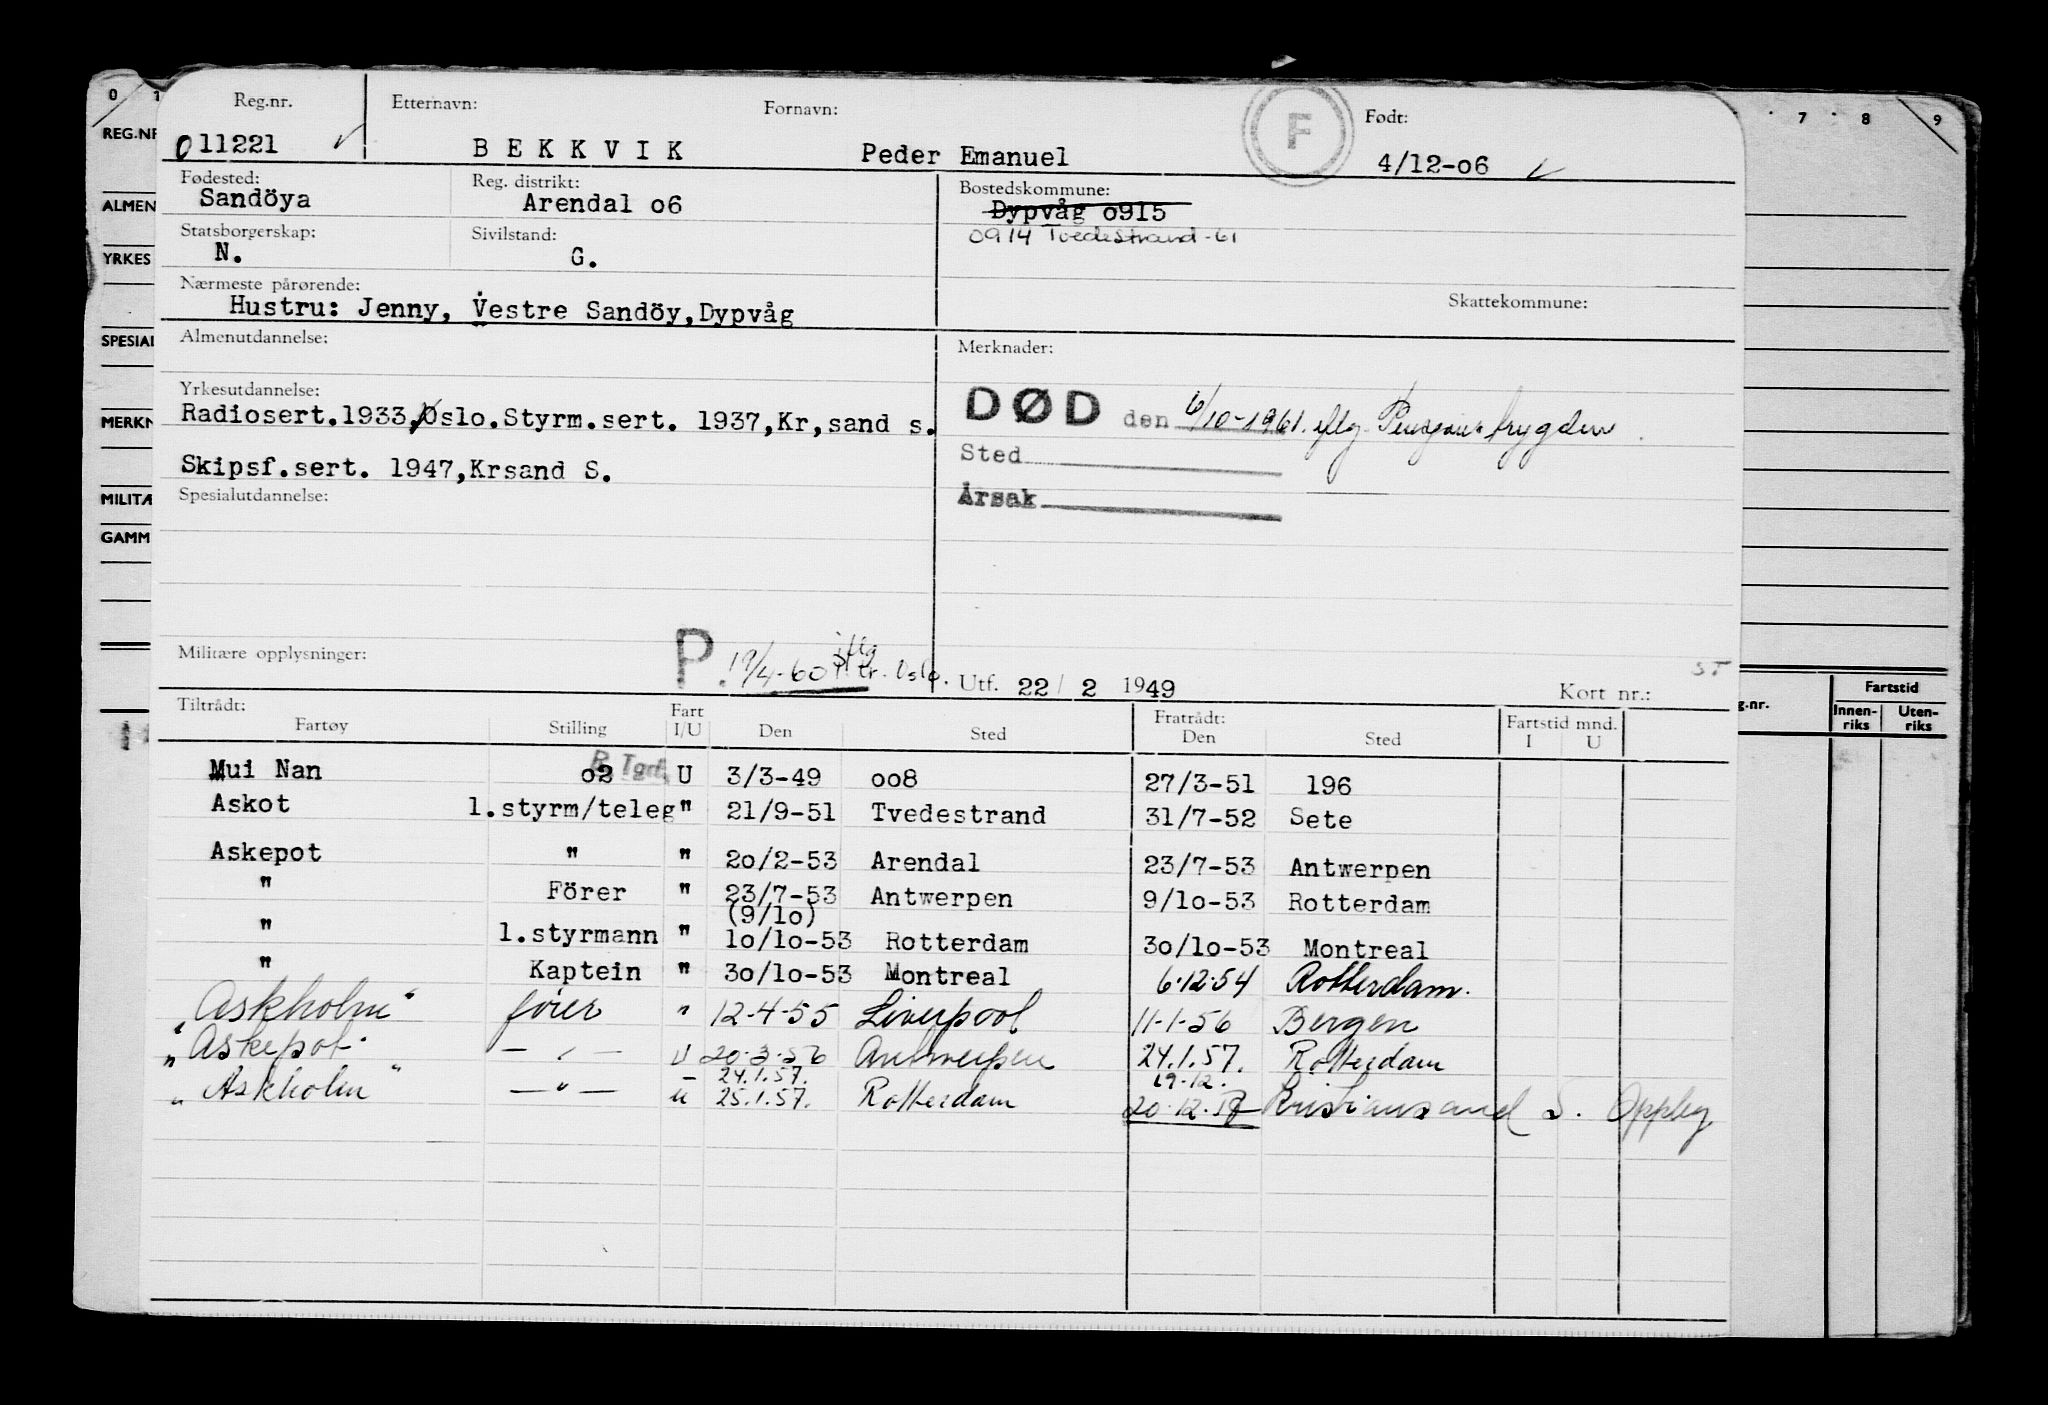 0 1 7 8 9
REG.NR
ALMEN
YRKES
SPESIAL
MERKN
MILITÆ
GAMM
Reg.nr. Etternavn: Fornavn: F Født:
0 11221 BEKKVIK Peder Emanuel 4/12-06
Fødested: Reg. distrikt: Bostedskommune:
Sandöya Arendal o6 Dypvåg o915
Statsborgerskap: Sivilstand: 0914 Tvedestrand-61
N. G.
Nærmeste pårørende: Skattekommune:
Hustru: Jenny, Vestre Sandöy,Dypvåg
Almenutdannelse: Merknader:
Yrkesutdannelse:
Radiosert.1933,Oslo.Styrm.sert. 1937,Kr,sand s. DØD den 6/10-1961. iflg. Pensjonstrygden.
Sted
Skipsf.sert. 1947,Krsand S.
Spesialutdannelse: Årsak
Militære opplysninger: P. 19/4-60 iflg P.tr. Oslo. Utf. 22/ 2 1949 Kort nr.: ST
Tiltrådt: Fart Fratrådt: Fartstid mnd.
Fartøy Stilling I/U Den Sted Den Sted I U
g.nr. Fartstid
Innen-riks Uten-riks
Mui Nan o2 R.Tgrf. U 3/3-49 oo8 27/3-51 196
Askot 1.styrm/teleg " 21/9-51 Tvedestrand 31/7-52 Sete
Askepot " " 20/2-53 Arendal 23/7-53 Antwerpen
" Förer " 23/7-53 Antwerpen 9/10-53 Rotterdam
(9/10)
" 1.styrmann " 10/10-53 Rotterdam 30/10-53 Montreal
" Kaptein " 30/10-53 Montreal 6.12.54 Rotterdam.
"Askholm" fører " 12-4-55 Liverpool 11-1-56 Bergen
"Askepot" — " — U 20.3.56 Antwerpen 24.1.57. Rotterdam
24.1.57. 19.12.
"Askholm" — " — u 25.1.57. Rotterdam 20.12.57 Kristiansand S. Oppby